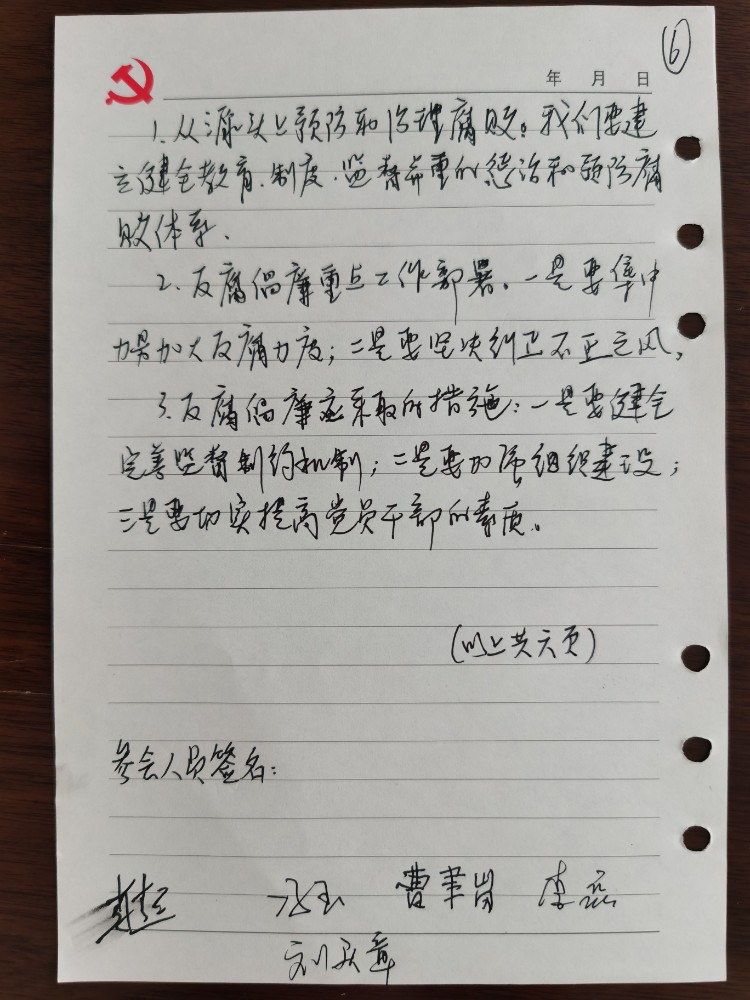 ⑥
年 月 日
1.从源头上预防和治理腐败。我们要建
立健全教育、制度、监督并重的惩治和预防腐
败体系.
2.反腐倡廉重点工作部署。一是要集中
力量加大反腐力度；二是要坚决纠正不正之风。
3.反腐倡廉应采取的措施：一是要健全
完善监督制约机制；二是要加强组织建设；
三是要切实提高党员干部的素质。
(以上共六页)
参会人员签名：
李磊